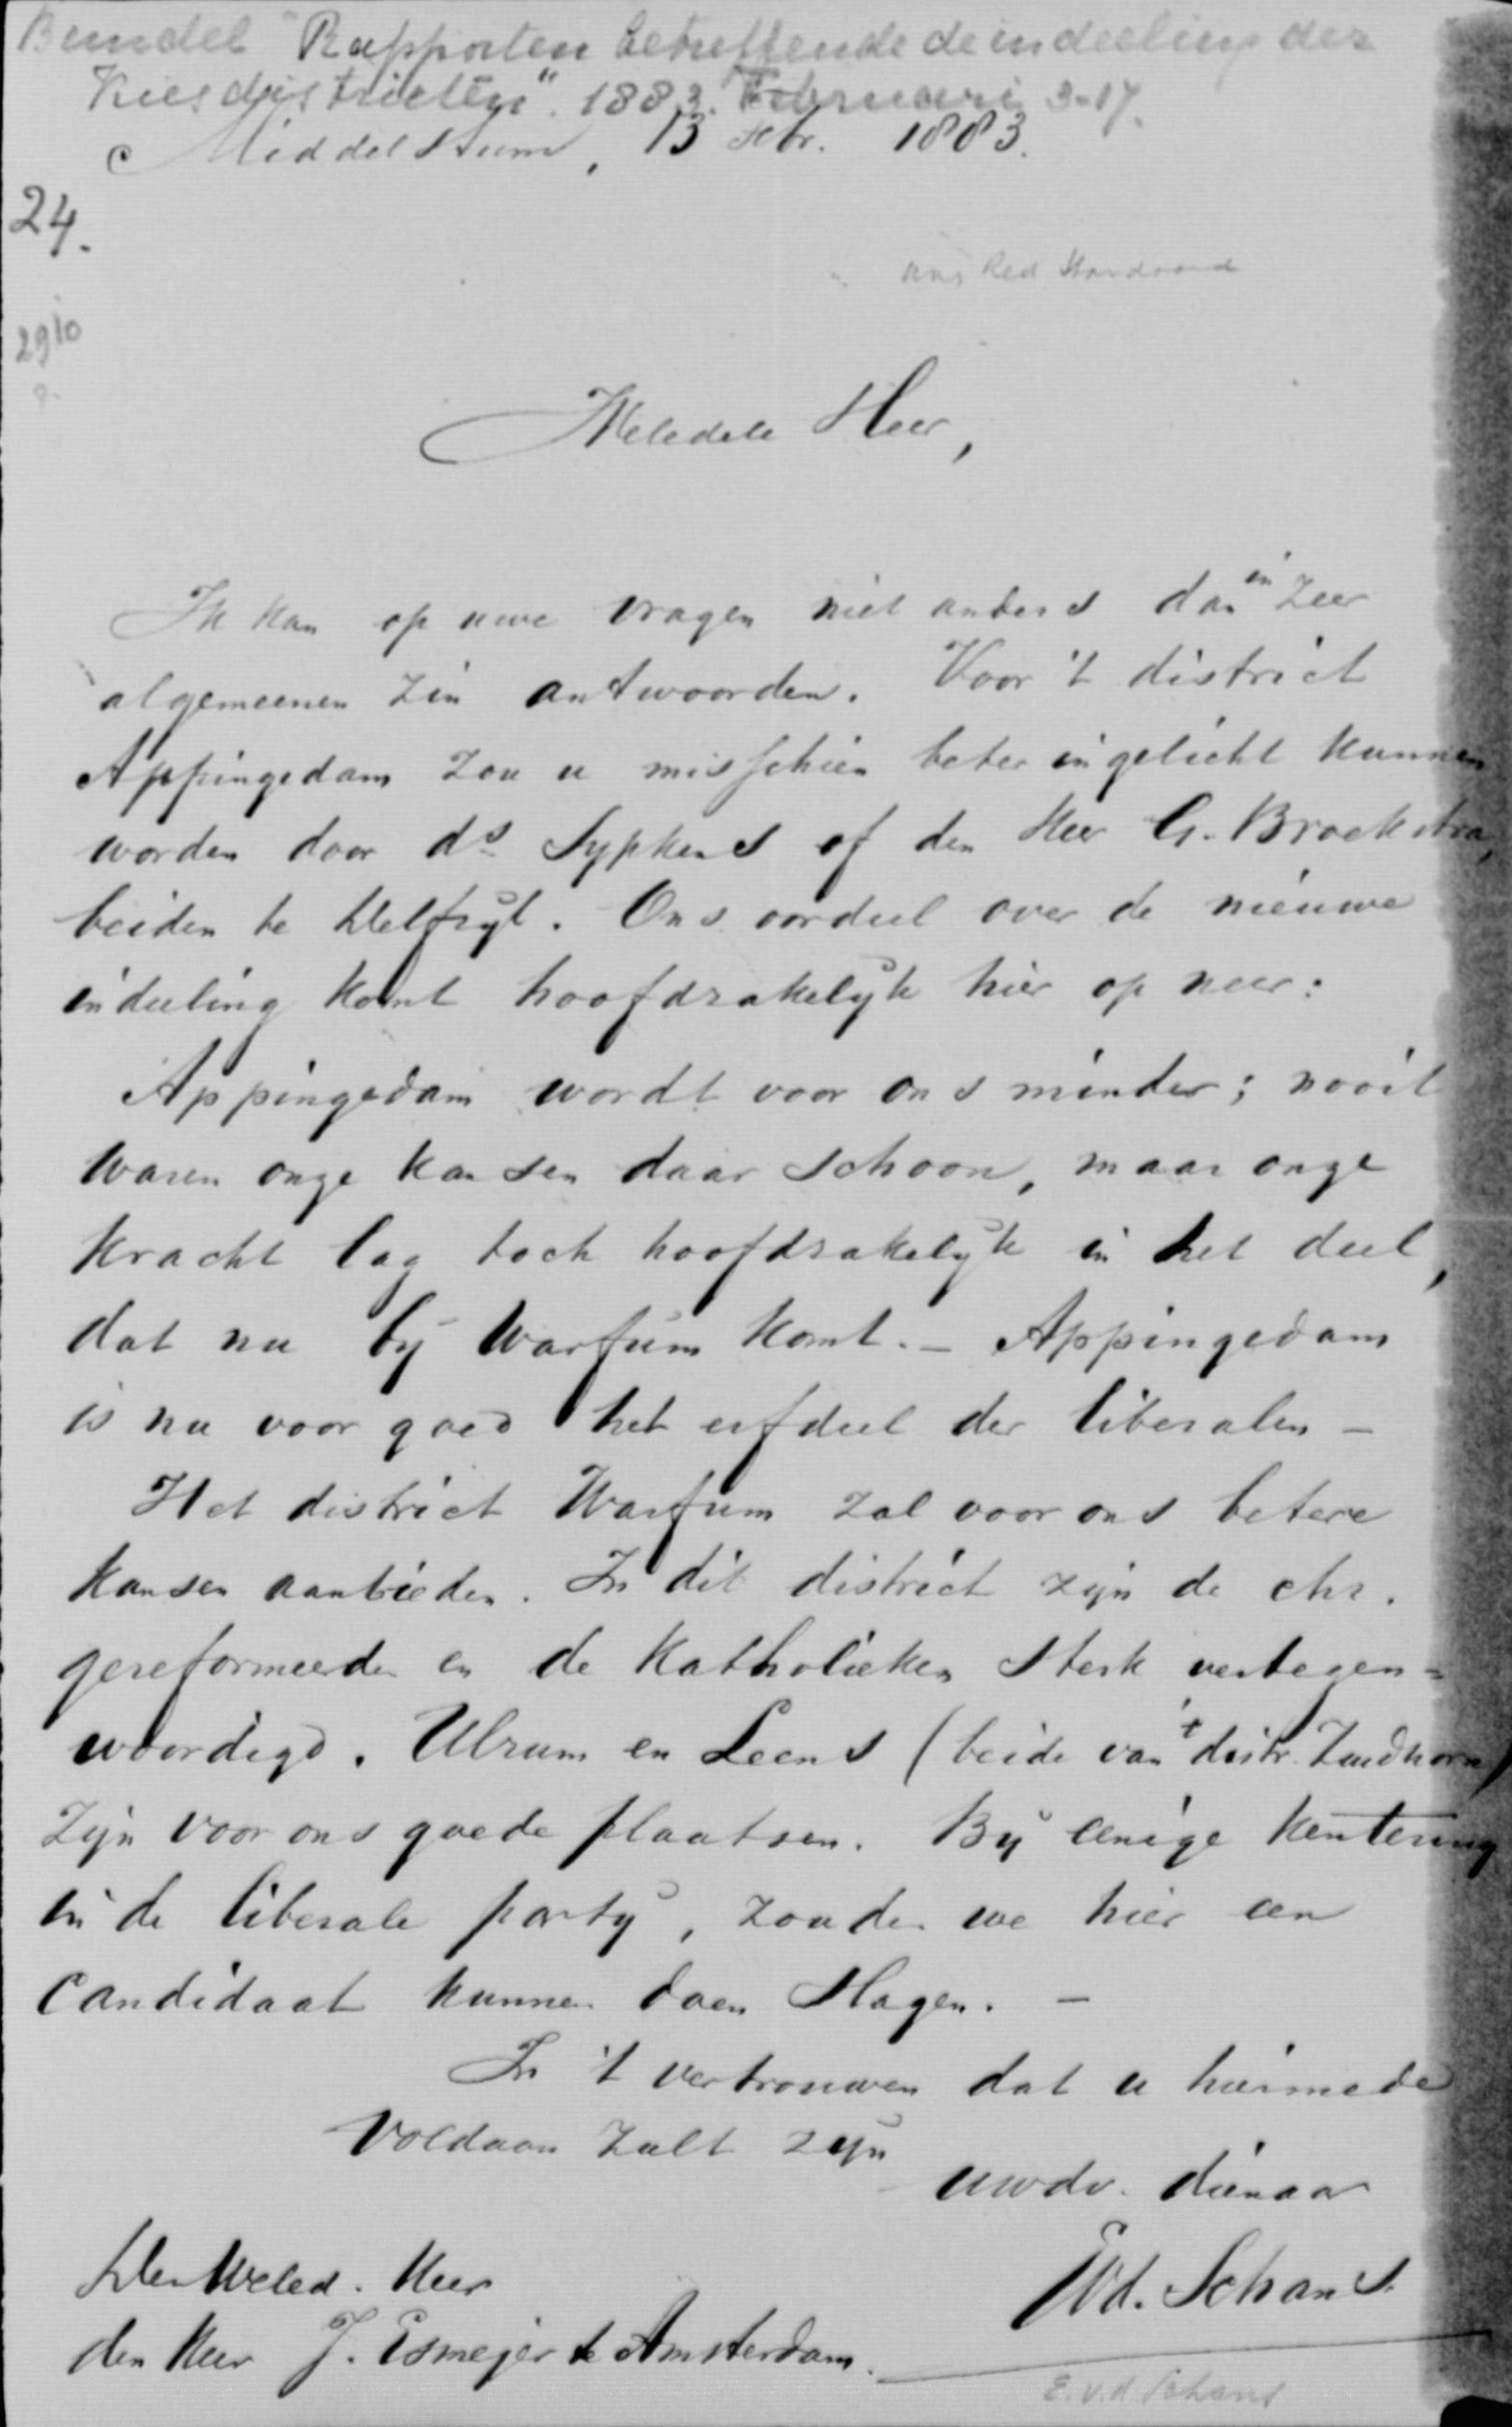 Bundel "Rapporten betreffende de indeeling der
Kiesdistricten". 1883. Februari 3-17.
Middelstum, 13 Febr. 1883.
24.
29 10
Red Standaard
Weledele Heer,
Ik kan op uwe vragen niet anders dan in zeer
algemeenen zin antwoorden. Voor 't district
Appingedam zou u misschien beter ingelicht kunnen
worden door ds Sypkens of den Heer G. Broekstra,
beiden te Delfzyl. Ons oordeel over de nieuwe
indeeling komt hoofdzakelijk hier op neer:
Appingedam wordt voor ons minder; nooit
waren onze kansen daar schoon, maar onze
kracht lag toch hoofdzakelijk in het deel,
dat nu bij Warfum komt. - Appingedam
is nu voor goed het erfdeel der liberalen -
Het district Warfum zal voor ons betere
kansen aanbieden. In dit district zijn de chr.
gereformeerden en de Katholieken sterk vertegen=
woordigd. Ulrum en Leens (beide van 't distr. Zuidhorn)
zijn voor ons goede plaatsen. Bij eenige kentering
in de liberale partij, zouden we hier een
candidaat kunnen doen slagen. -
In 't vertrouwen dat u hiermede
voldaan zult zijn
uwdv. dienaar
Den Weled. Heer
Evd. Schans.
den Heer J. Esmeijer te Amsterdam.
E. v. d. Schans